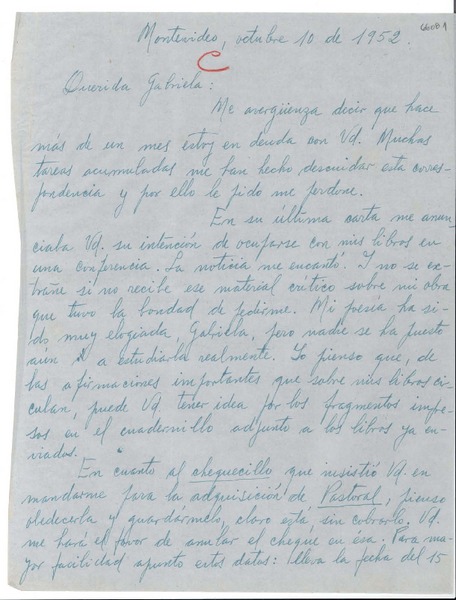 6608A
Montevideo, octubre 10 de 1952.
C
Querida Gabriela:
Me avergüenza decir que hace
más de un mes estoy en deuda con Vd. Muchas
tareas acumuladas me han hecho descuidar esta corres-
pondencia y por ello le pido me perdone.
En su última carta me anun-
ciaba Vd. su intención de ocuparse con mis libros en
una conferencia. La noticia me encantó. I no se ex-
trañe si no recibe ese material crítico sobre mi obra
que tuvo la bondad de pedirme. Mi poesía ha si-
do muy elogiada, Gabriela, pero nadie se ha puesto
aún a estudiarla realmente. Yo pienso que, de
las afirmaciones importantes que sobre mis libros cir-
culan, puede Vd. tener idea por los fragmentos impre-
sos en el cuadernillo adjunto a los libros ya en-
viados.
En cuanto al chequecillo que insistió Vd. en
mandarme para la adquisición de Pastoral, pienso
obedecerla y guardármelo, claro está, sin cobrarlo. Vd.
me hará el favor de anular el cheque en esa. Para ma-
yor facilidad apunto estos datos: lleva la fecha del 15